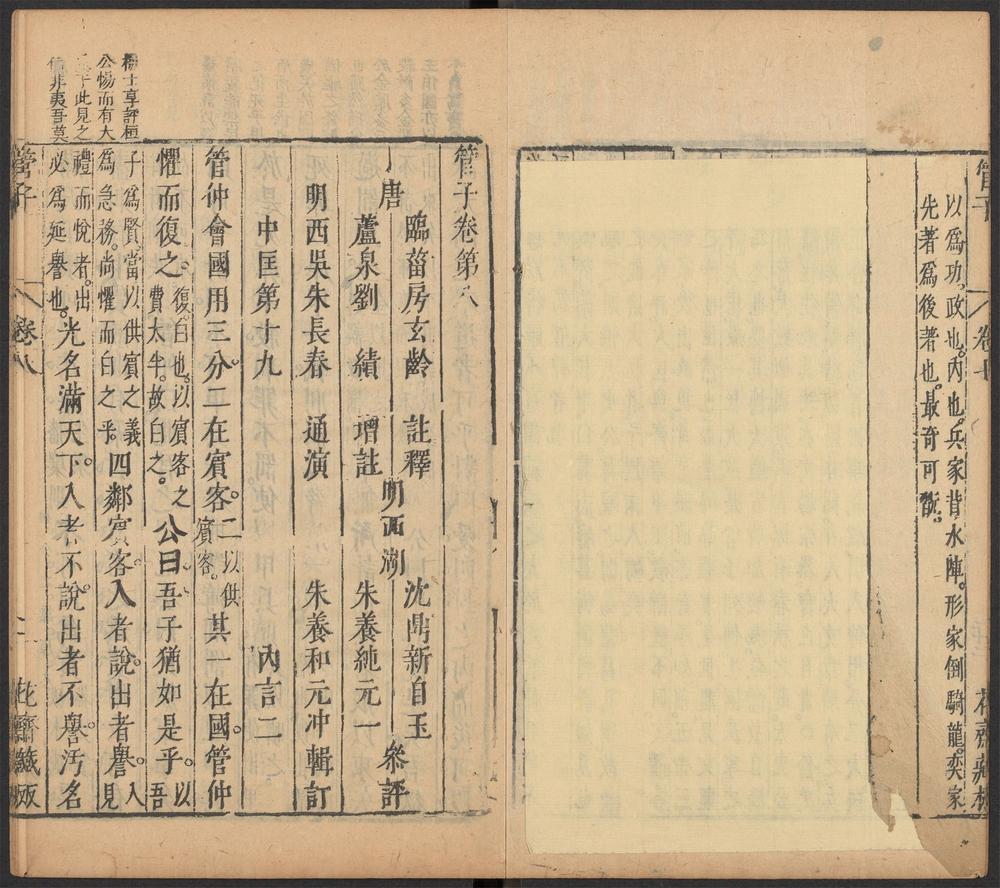 管子 卷七 花齋藏板
以爲功。政也。内也。兵家背水陣。形家倒騎龍。奕家
先著爲後著也。最奇可翫。
管子卷第八
唐
臨菑房玄齡 註釋
蘆泉劉績 增註
明西吳朱長春 通演
明西湖
沈鼎新自玉
朱養純元一
參評
朱養和元冲輯訂
中匡第十九 內言二
管仲會國用三分二在賓客。二以供賓客。其一在國。管仲
懼而復之。復。白也。以賓客之費太半。故白之。公曰。吾子猶如是乎。以吾
子爲賢。當以供賓之義爲急務。尚懼而白之乎四鄰賓客。入者說。出者譽。入見
禮而悅者。出必爲延譽也。光名滿天下。入者不說。出者不譽。汚名
公惕而有大
于此見之
非夷吾莫
管子 卷八 一 花齋藏板